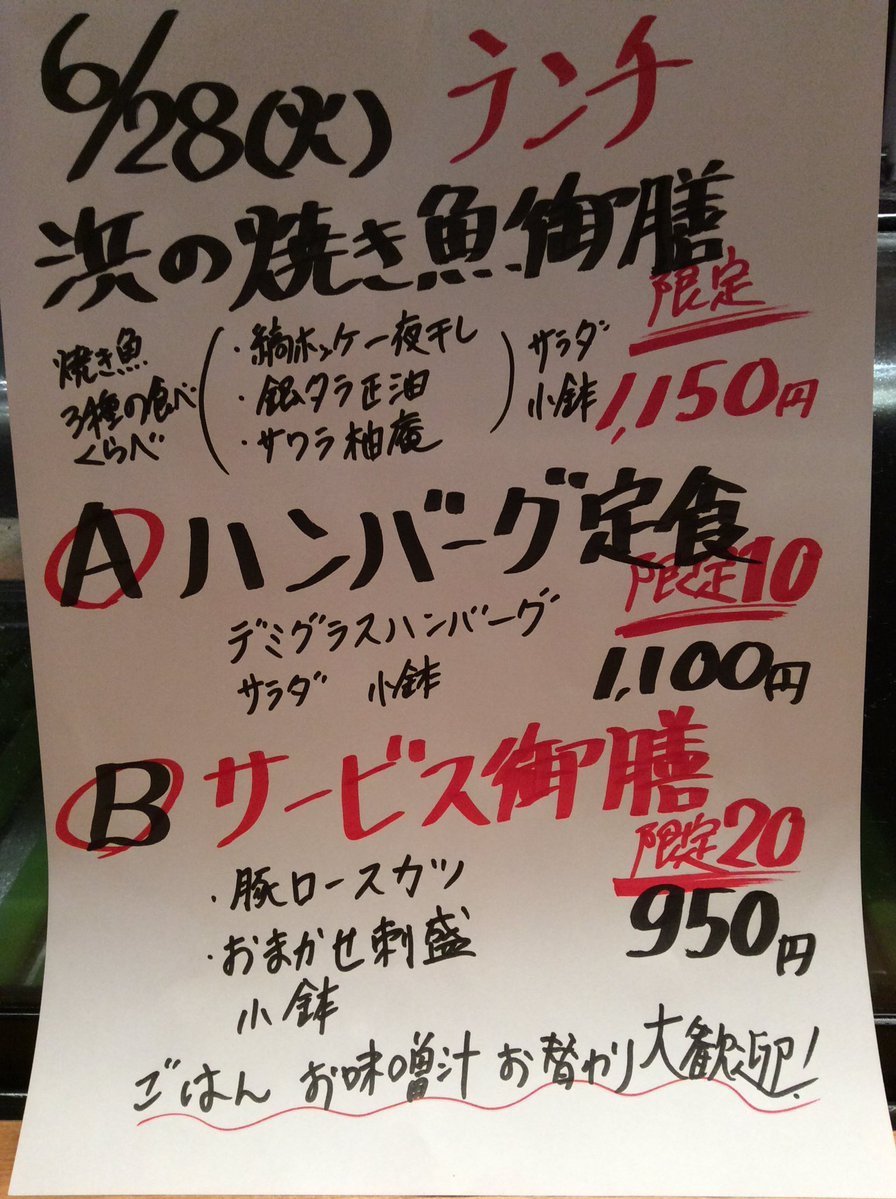 6/28(火) ランチ
浜の焼き魚御膳
限定
焼き魚
3種の食べ
くらべ
・縞ホッケ一夜干し
・銀タラ正油
・サワラ柚庵
サラダ
小鉢
1,150円
A ハンバーグ定食
限定10
デミグラスハンバーグ
サラダ 小鉢
1,100円
B サービス御膳
限定20
・豚ロースカツ
・おまかせ刺盛
小鉢
950円
ごはん お味噌汁 お替わり大歓迎!